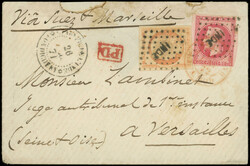 Via Suez & Marseille
PD
Monsieur Lambinet
Juge au tribunal de 1re Instance
à Versailles
(Seine & Oise)